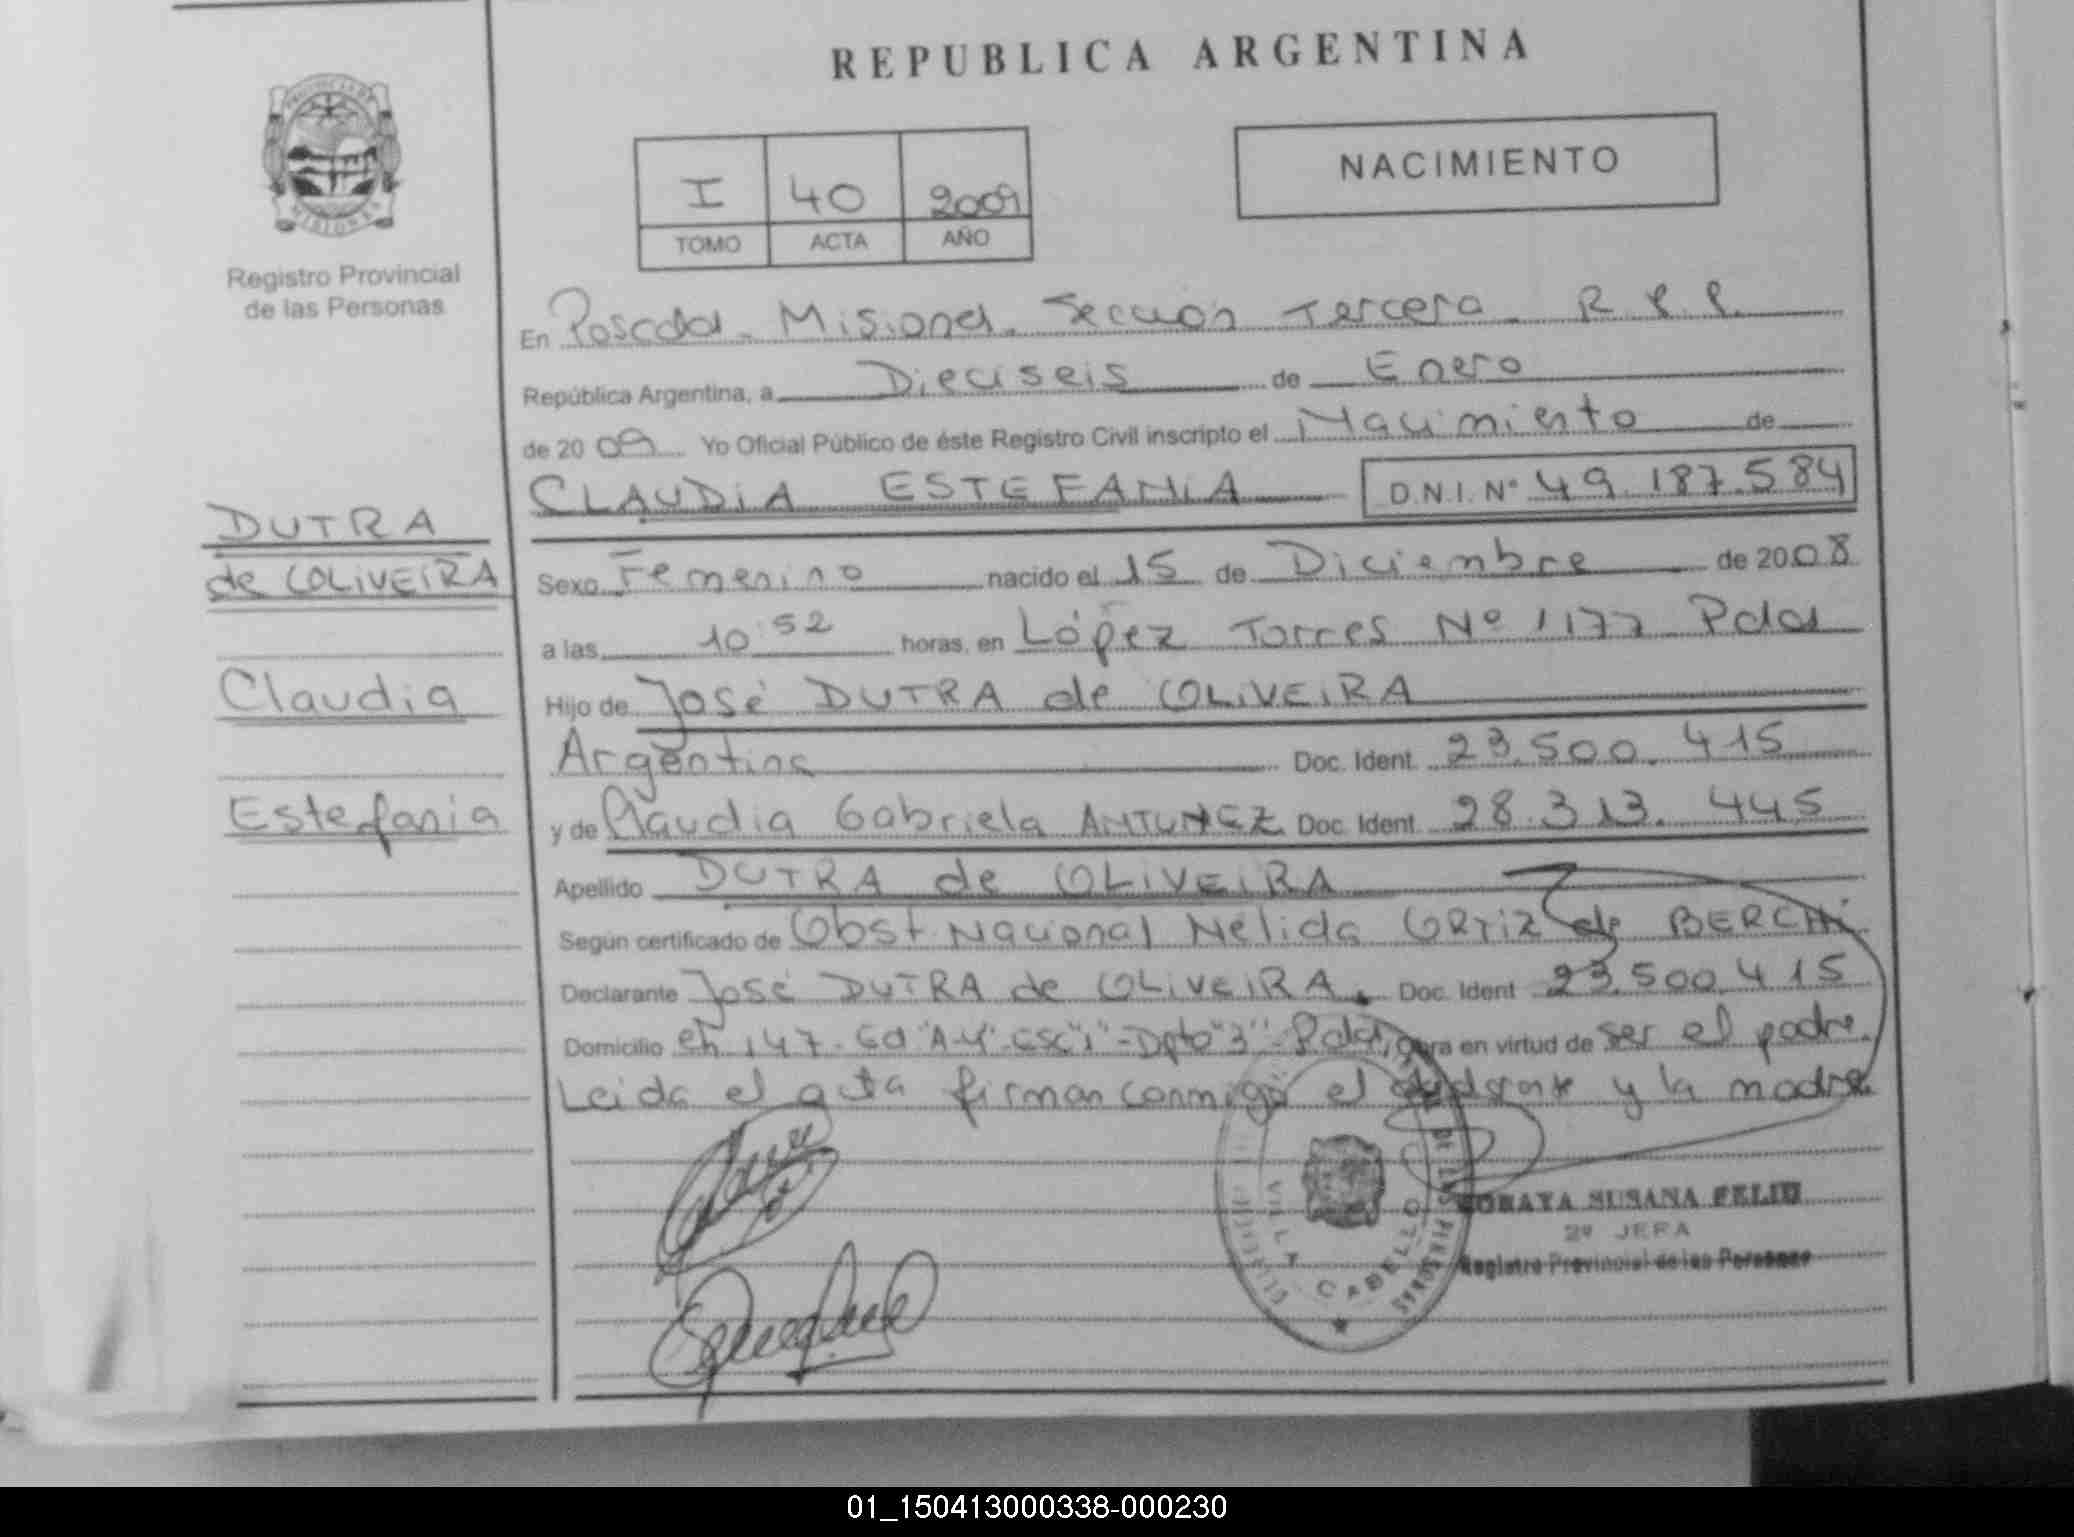 REPUBLICA ARGENTINA
PROVINCIA DE
MISIONES
Registro Provincial
de las Personas
I 40 2009
TOMO ACTA AÑO
NACIMIENTO
En Posadas. Misiones. Sección Tercera. R.P.P.
República Argentina, a Dieciseis de Enero
de 2009 Yo Oficial Público de éste Registro Civil inscripto el Nacimiento de
CLAUDIA ESTEFANIA D.N.I. Nº 49.187.584
DUTRA
de OLIVEIRA
Claudia
Estefania
Sexo Femenino nacido el 15 de Diciembre de 2008
a las 10:52 horas, en López Torres Nº 1177 Pdas
Hijo de José DUTRA de OLIVEIRA
Argentina Doc. Ident. 23.500.415
y de Claudia Gabriela ANTUNEZ Doc. Ident. 28.313.445
Apellido DUTRA de OLIVEIRA
Según certificado de Obst. Nacional Nélida ORTIZ de BERCHI
Declarante José DUTRA de OLIVEIRA. Doc. Ident 23.500.415
Domicilio Ch 147-Ed "A-4"-Esc"1"-Dpto"3"-Pdas, obra en virtud de ser el padre.
Leida el acta firman conmigo el declarante y la madre.
DE LAS PERSONAS
VILLA CABELLO
SORAYA SUSANA FELIU
2º JEFA
Registro Provincial de las Personas
01_150413000338-000230